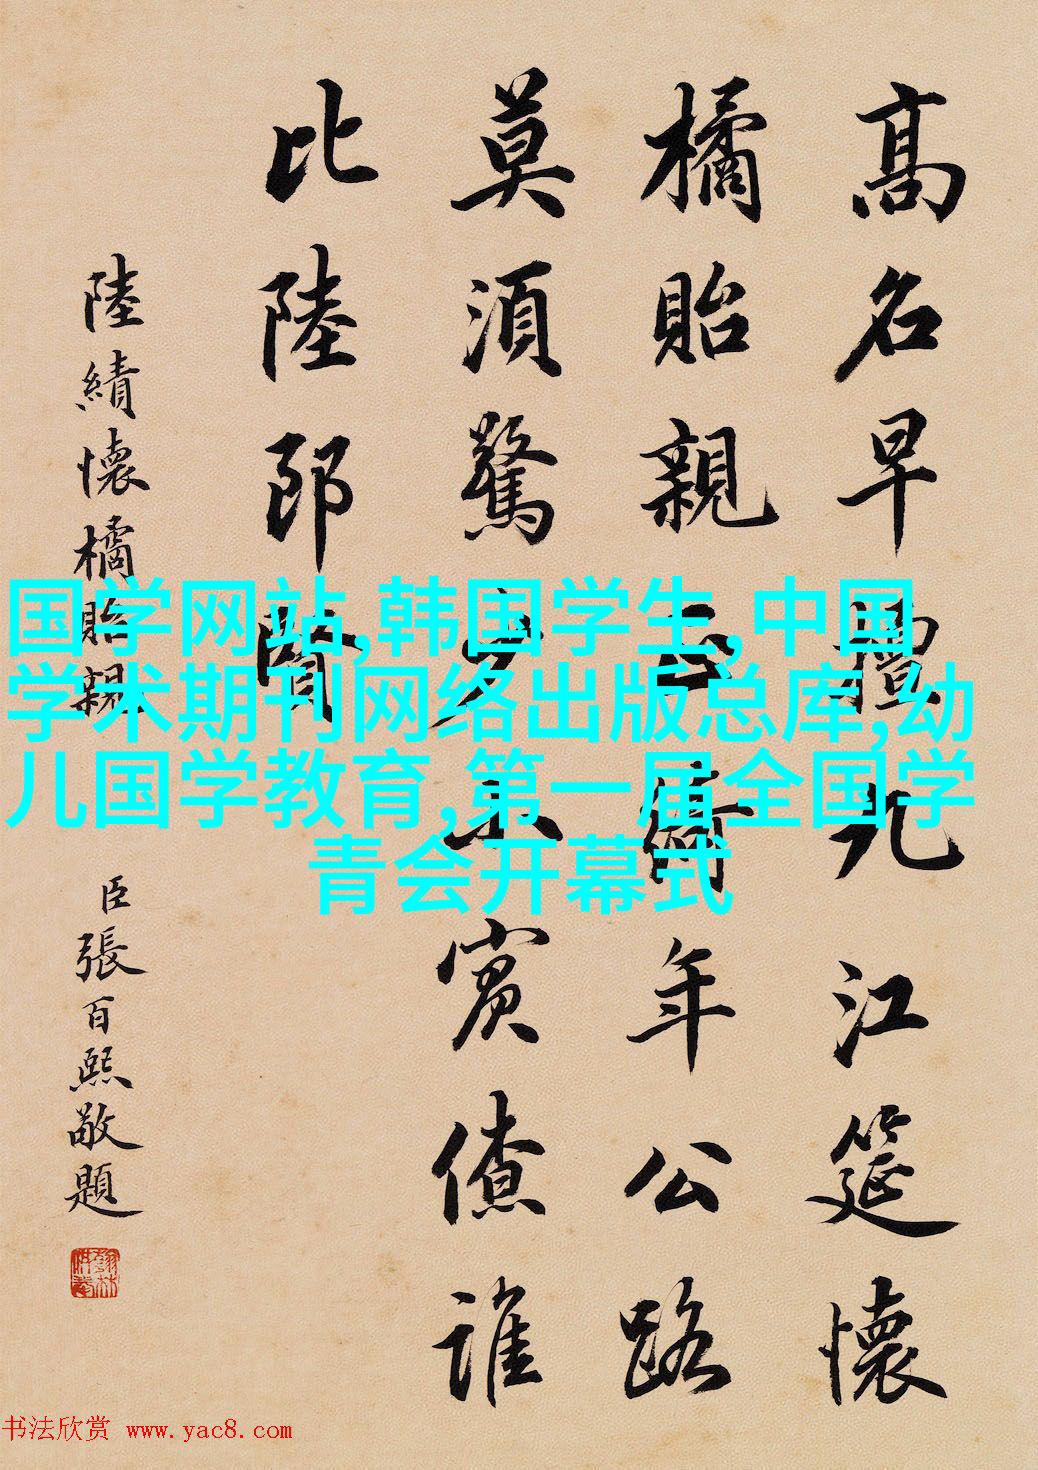 高名早擅九江筵懷
橘貽親正綺年公路
莫須驚小賓僚誰
比陸郎賢
陸績懷橘貽親
臣張百熙敬題
国学网站,韩国学生,中国
学术期刊网络出版总库,幼
儿国学教育,第一届全国学
青会开幕式
书法欣赏 www.yac8.com